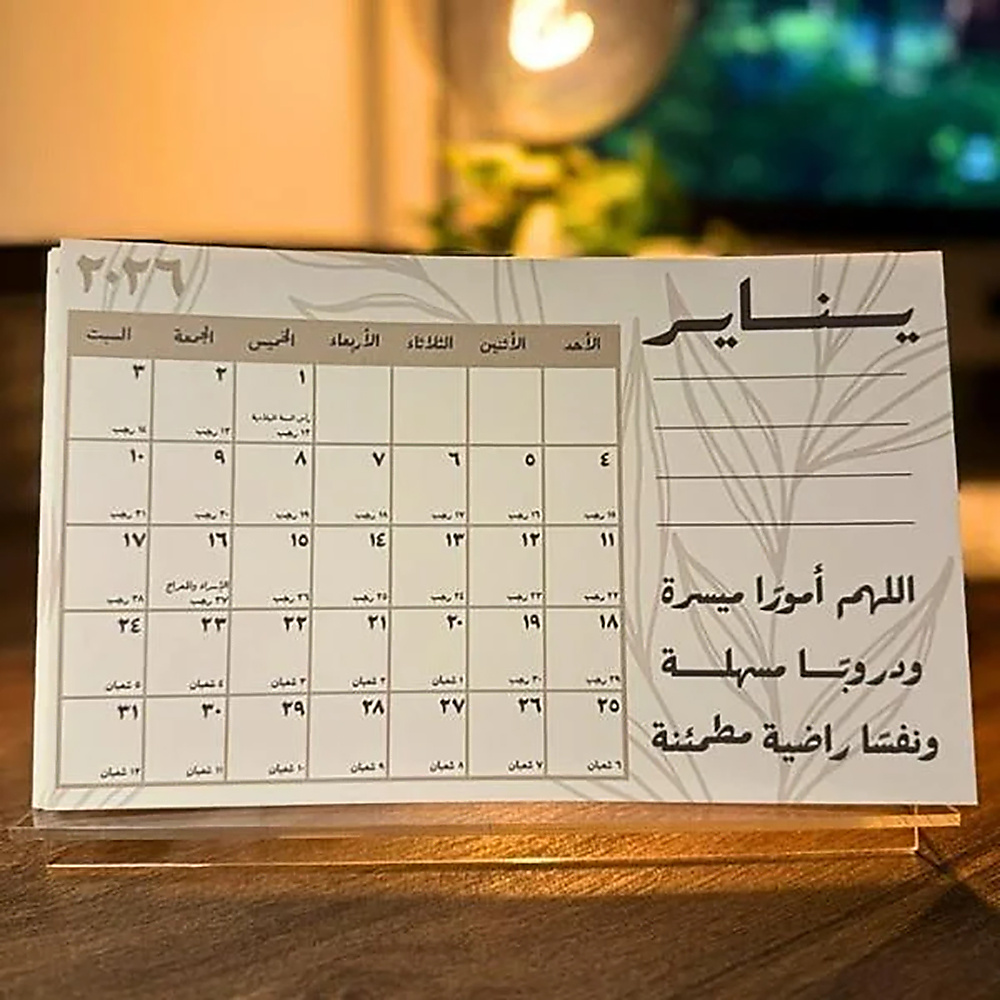 يناير
٢٠٢٦
الأحد الأثنين الثلاثاء الأربعاء الخميس الجمعة السبت
١ ٢ ٣
رأس السنة الميلادية
١٢ رجب ١٣ رجب ١٤ رجب
٤ ٥ ٦ ٧ ٨ ٩ ١٠
١٥ رجب ١٦ رجب ١٧ رجب ١٨ رجب ١٩ رجب ٢٠ رجب ٢١ رجب
١١ ١٢ ١٣ ١٤ ١٥ ١٦ ١٧
الأسراء والمعراج
٢٢ رجب ٢٣ رجب ٢٤ رجب ٢٥ رجب ٢٦ رجب ٢٧ رجب ٢٨ رجب
١٨ ١٩ ٢٠ ٢١ ٢٢ ٢٣ ٢٤
٢٩ رجب ٣٠ رجب ١ شعبان ٢ شعبان ٣ شعبان ٤ شعبان ٥ شعبان
٢٥ ٢٦ ٢٧ ٢٨ ٢٩ ٣٠ ٣١
٦ شعبان ٧ شعبان ٨ شعبان ٩ شعبان ١٠ شعبان ١١ شعبان ١٢ شعبان
اللهم أمورًا ميسرة
ودروبًا مسهلة
ونفسًا راضية مطمئنة